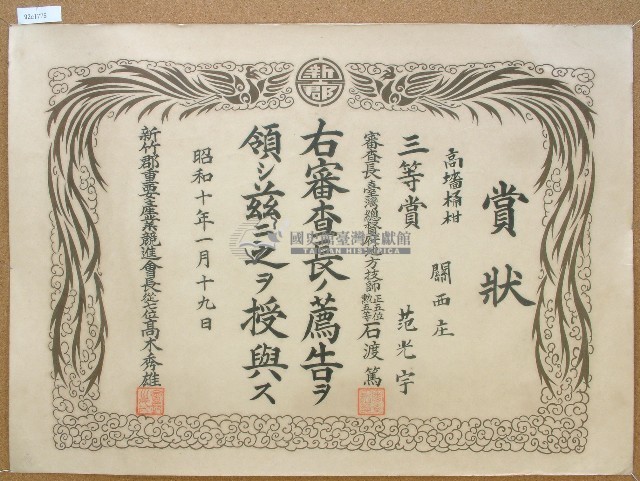 賞狀
高墻桶柑 關西庄 范光宇
三等賞
審查長臺灣總督府地方技師正五位勲五等石渡篤
右審查長ノ薦告ヲ
領シ茲ニ之ヲ授與ス
昭和十年一月十九日
新竹郡重要產業競進會長從七位高木秀雄
新郡
國史館臺灣文獻館
TAIWAN HISTORICA